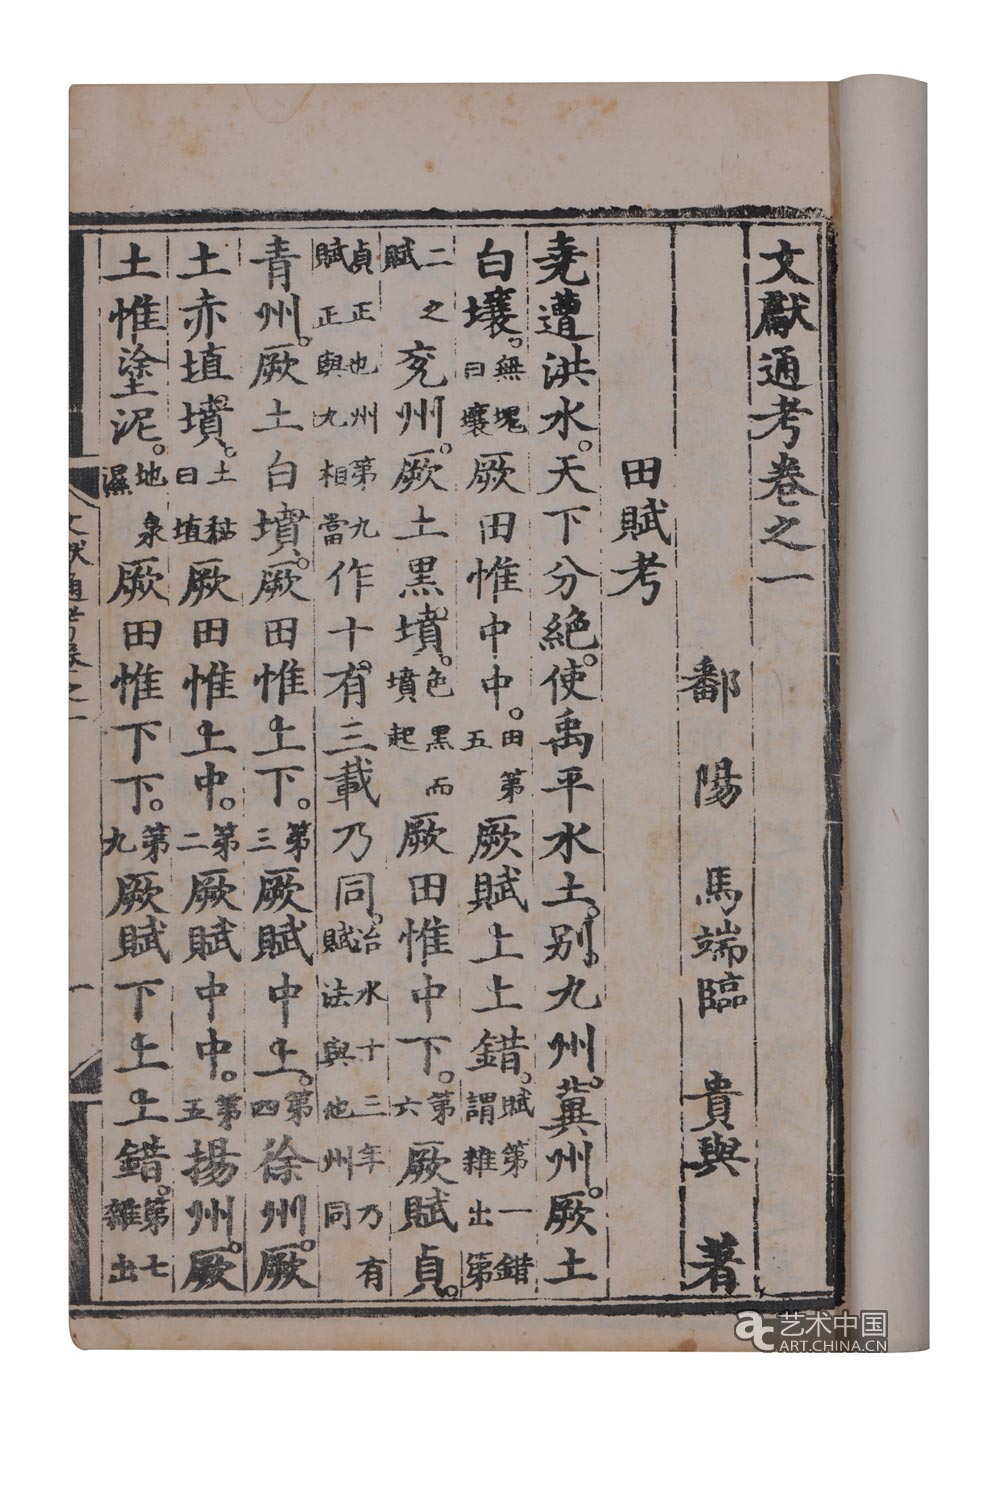 文獻通考卷之一
鄱陽馬端臨貴與著
田賦考
堯遭洪水。天下分絶。使禹平水土。别九州。冀州。厥土
白壤。無塊曰壤厥田惟中中。田第五厥賦上上錯。賦第一錯謂雜出第
二之賦兖州。厥土黑墳。色黑而墳起厥田惟中下。第六厥賦貞。
貞正也州第九賦正與九相當作十有三載乃同。治水十三年乃有賦法與他州同
青州。厥土白墳。厥田惟上下。第三厥賦中上。第四徐州。厥
土赤埴墳。土黏曰埴厥田惟上中。第二厥賦中中。第五揚州。厥
土惟塗泥。地泉濕厥田惟下下。第九厥賦下上上錯。第七雜出
文獻通考卷之一
一
艺术中国
ART.CHINA.CN